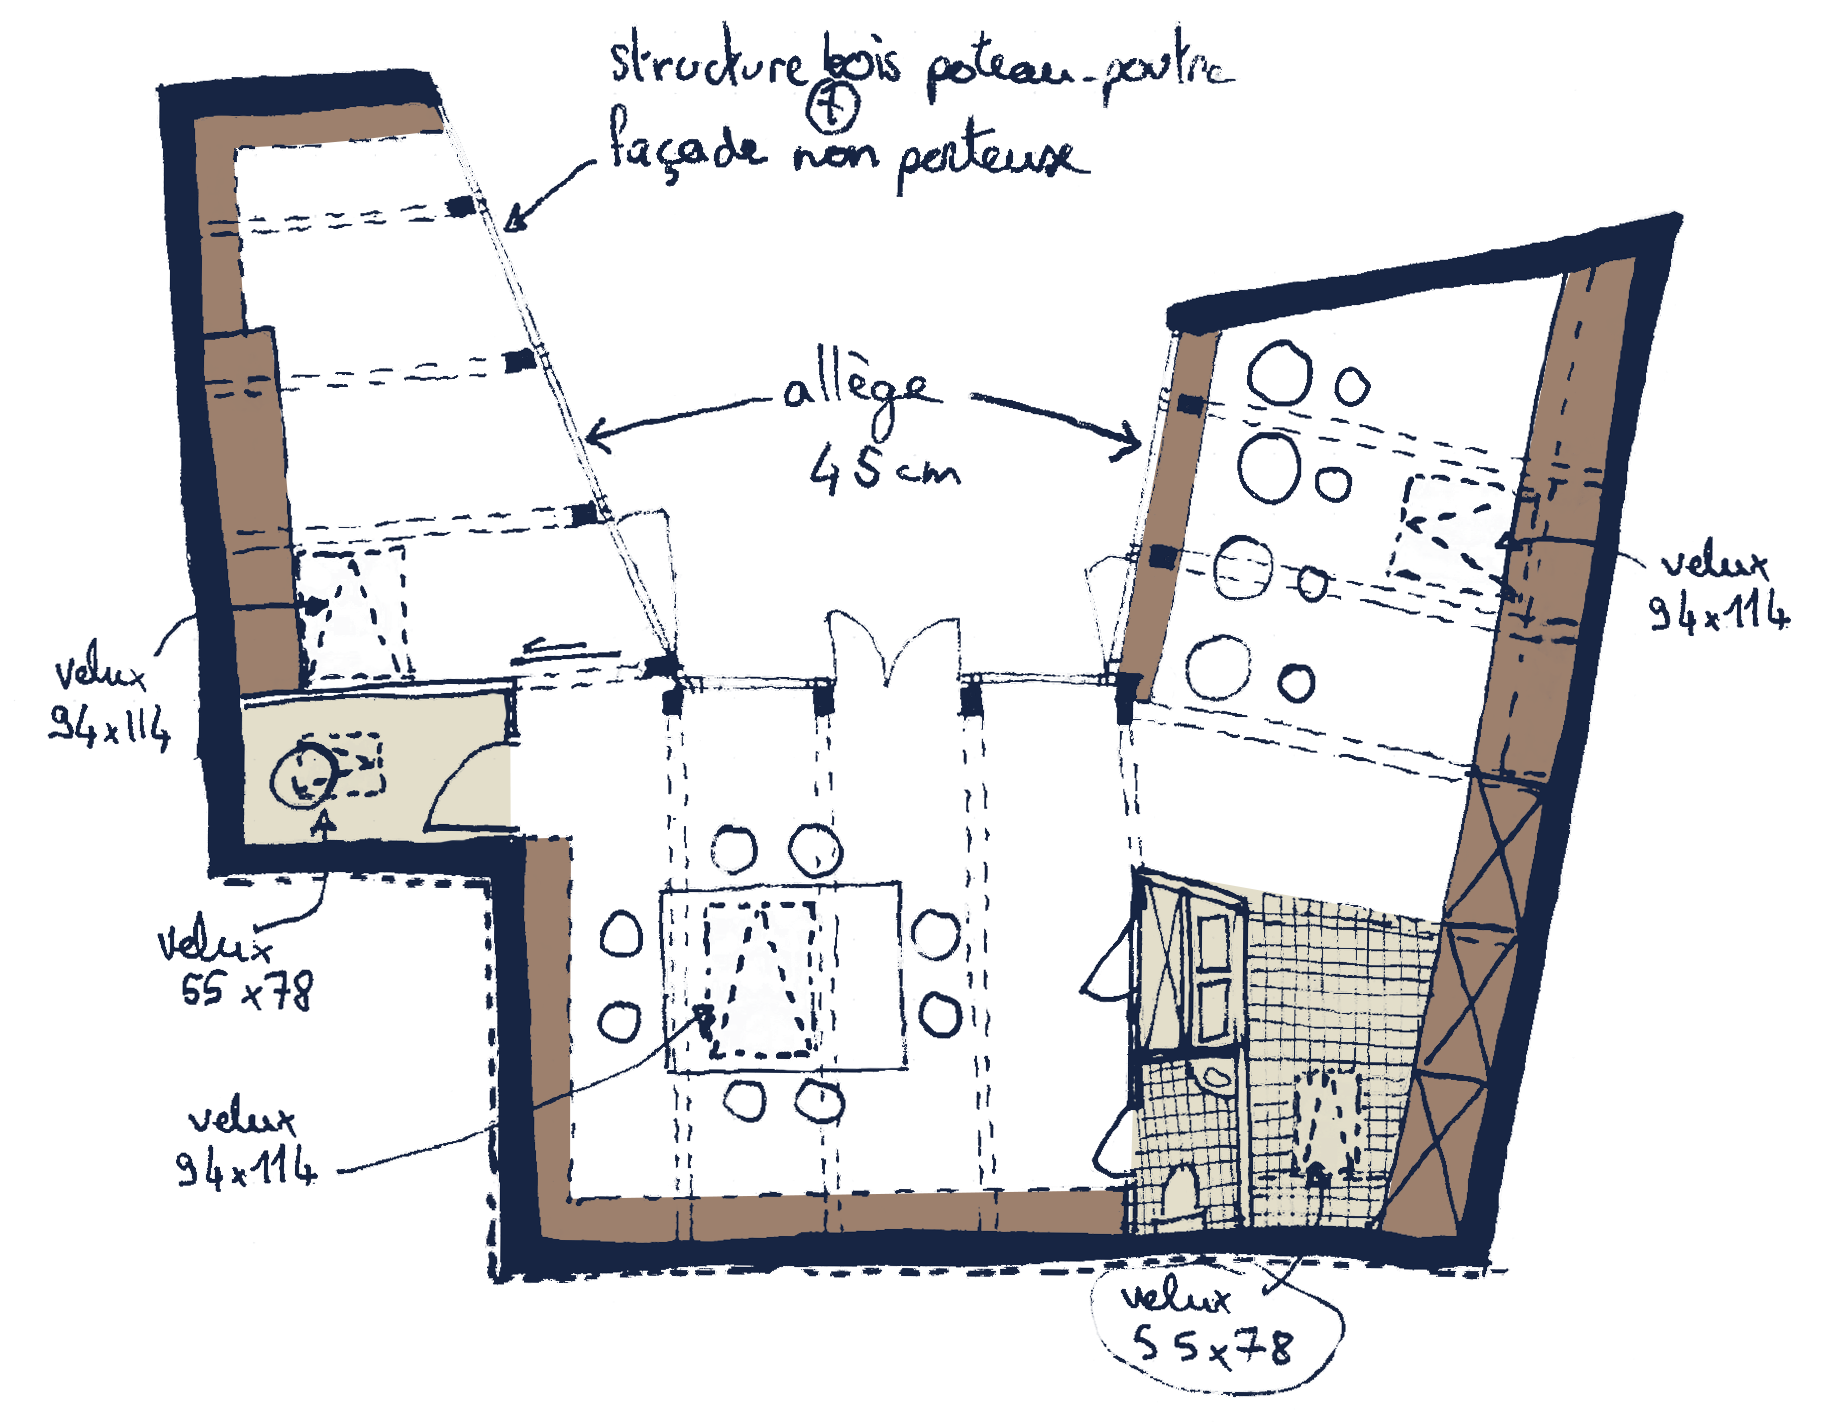 structure bois poteau-poutre
⑦
façade non porteuse
allège
45cm
velux
94x114
velux
94x114
velux
55x78
velux
94x114
velux
55x78